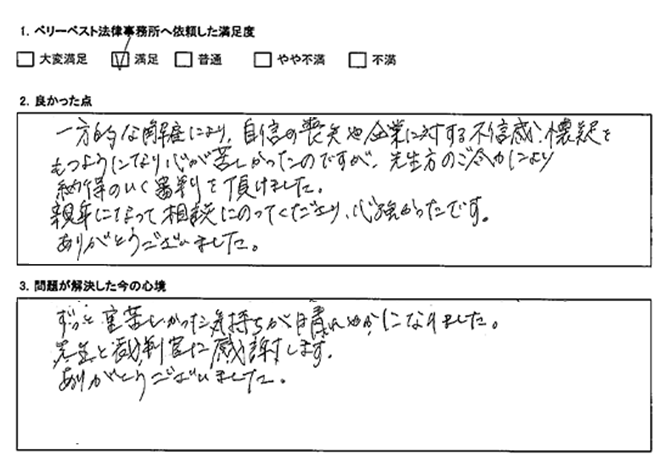 1. ベリーベスト法律事務所へ依頼した満足度
□ 大変満足 ☑ 満足 □ 普通 □ やや不満 □ 不満
2. 良かった点
一方的な解雇により、自信の喪失や企業に対する不信感、懐疑を
もつようになり心が苦しかったのですが、先生方のご尽力により
納得のいく審判を頂けました。
親身になって相談にのってくださり、心強かったです。
ありがとうございました。
3. 問題が解決した今の心境
ずっと重苦しかった気持ちが晴れやかになりました。
先生と裁判官に感謝します。
ありがとうございました。